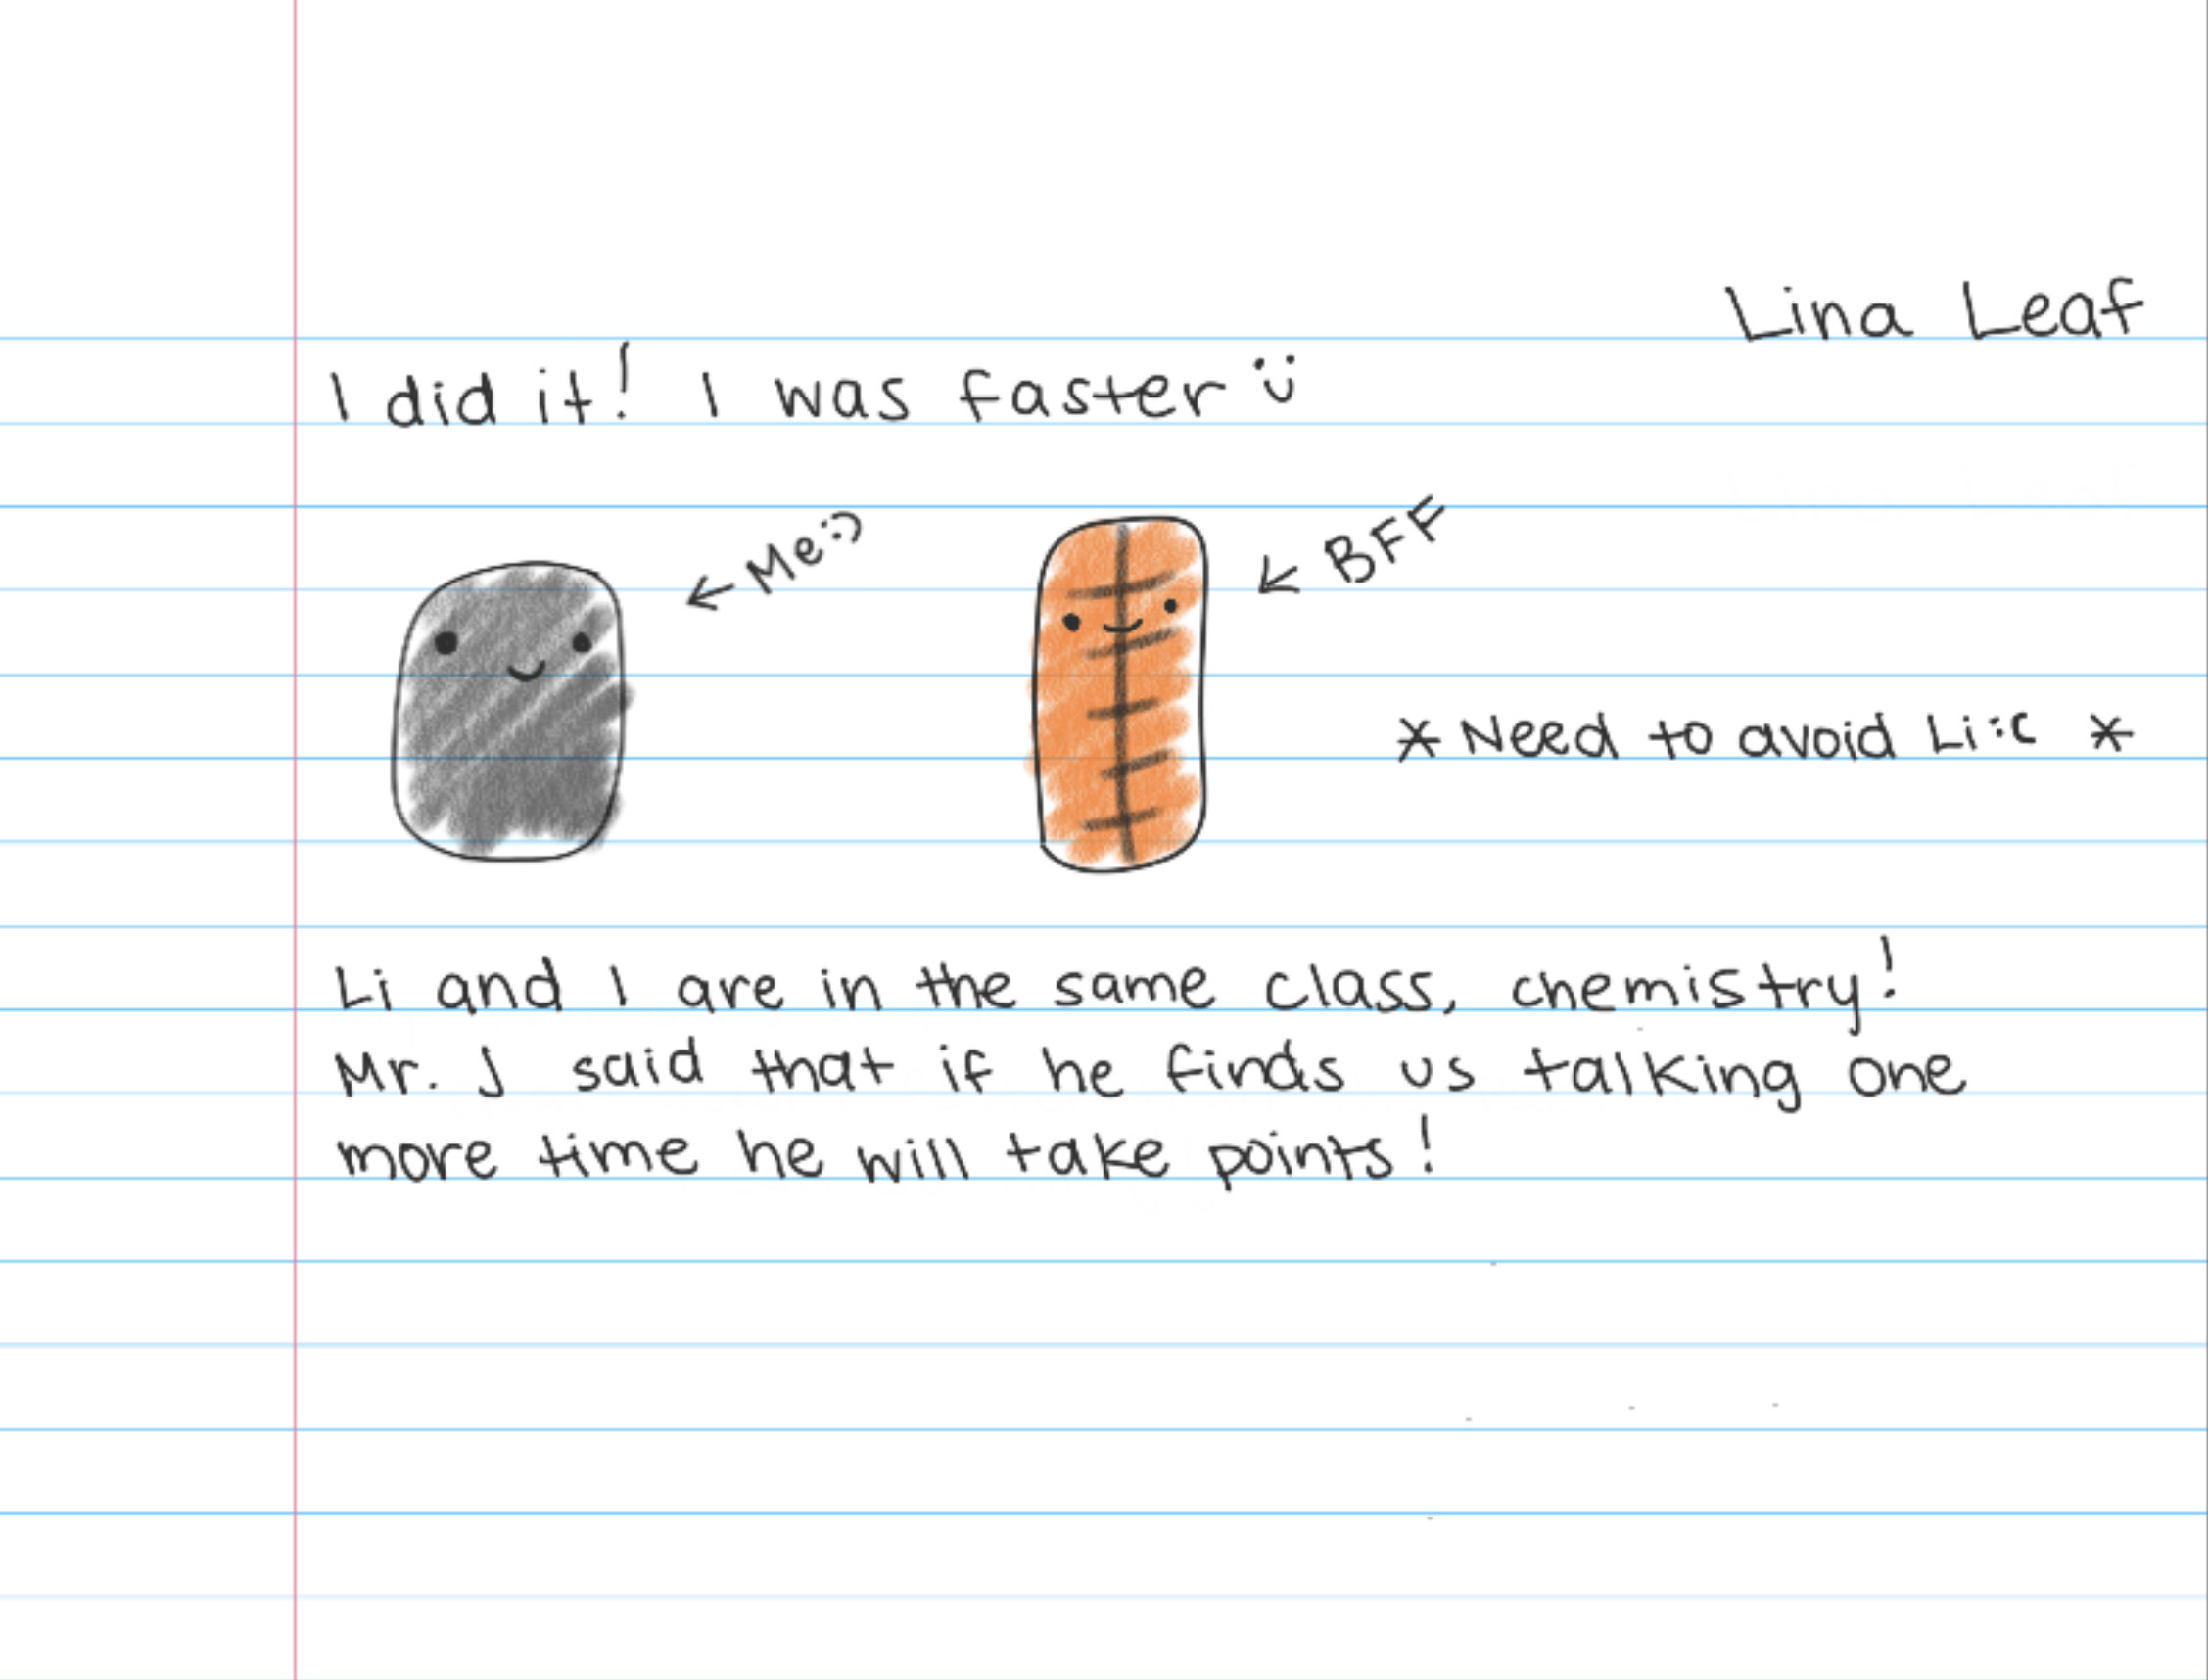 Lina Leaf
I did it! I was faster :)
← Me :)
← BFF
* Need to avoid Li :c *
Li and I are in the same class, chemistry!
Mr. J said that if he finds us talking one
more time he will take points!